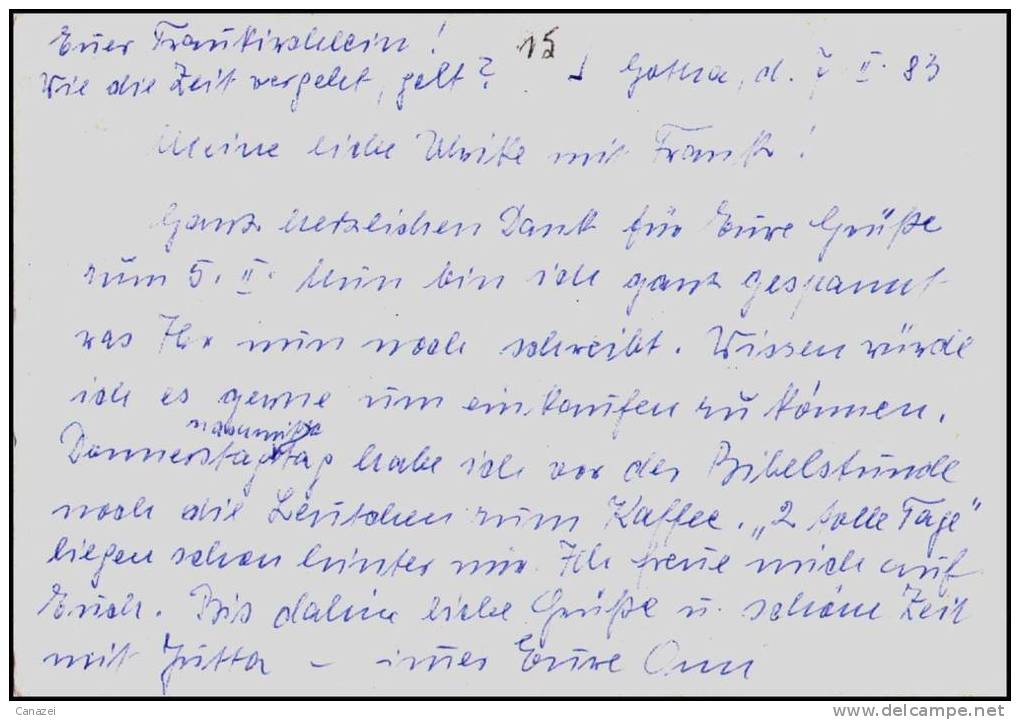 Euer Traukirchlein! 15
Wie die Zeit vergeht, gelt? Gotha, d. 7. II. 83
Meine liebe Ulrike mit Frank!
Ganz herzlichen Dank für Eure Grüße
zum 5. II. Nun bin ich ganz gespannt
was Ihr nun noch schreibt. Wissen würde
ich es gerne um einkaufen zu können.
nachmittag
Donnerstag habe ich vor der Bibelstunde
noch die Leutchen zum Kaffee. „2 tolle Tage“
liegen schon hinter mir. Ich freue mich auf
Euch. Bis dahin liebe Grüße u. schöne Zeit
mit Jutta – immer Eure Omi
Canazei
www.delcampe.net